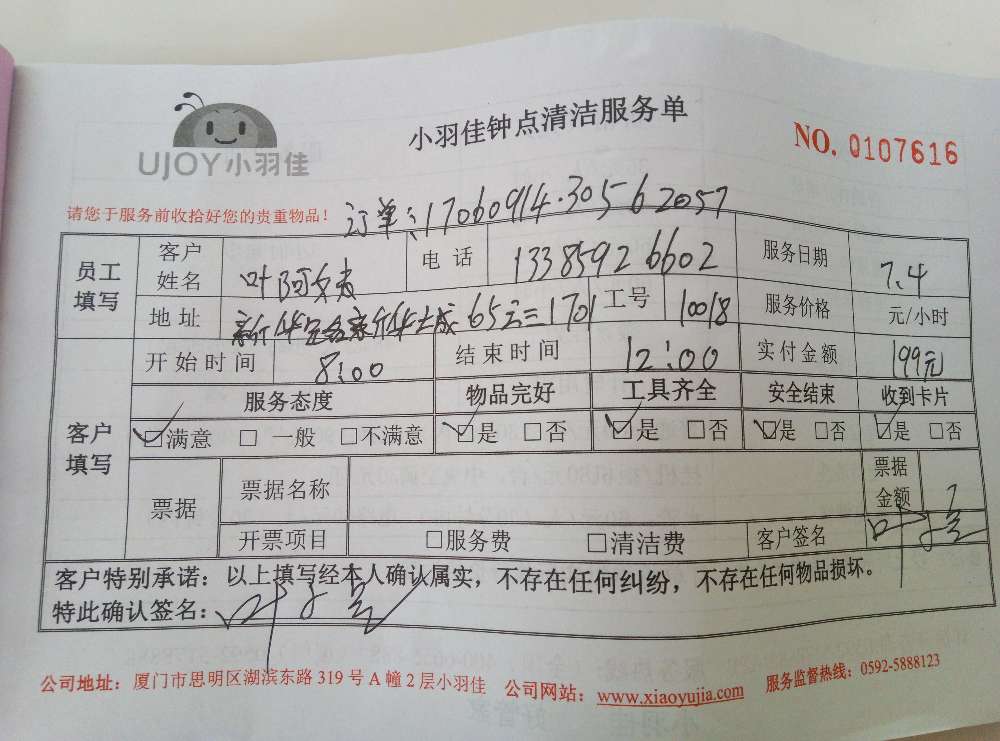 UJOY小羽佳
小羽佳钟点清洁服务单
NO. 0107616
请您于服务前收拾好您的贵重物品!
订单:17060914305562057
员工填写 客户姓名 叶阿 电话 13385926602 服务日期 7.4
地址 65 1701 工号 10018 服务价格 元/小时
客户填写 开始时间 8:00 结束时间 12:00 实付金额 199元
服务态度 物品完好 工具齐全 安全结束 收到卡片
☑满意 □一般 □不满意 ☑是 □否 ☑是 □否 ☑是 □否 ☑是 □否
票据 票据名称 票据金额
开票项目 □服务费 □清洁费 客户签名 叶
客户特别承诺:以上填写经本人确认属实,不存在任何纠纷,不存在任何物品损坏。
特此确认签名: 叶
公司地址:厦门市思明区湖滨东路319号A幢2层小羽佳 公司网站:www.xiaoyujia.com 服务监督热线:0592-5888123